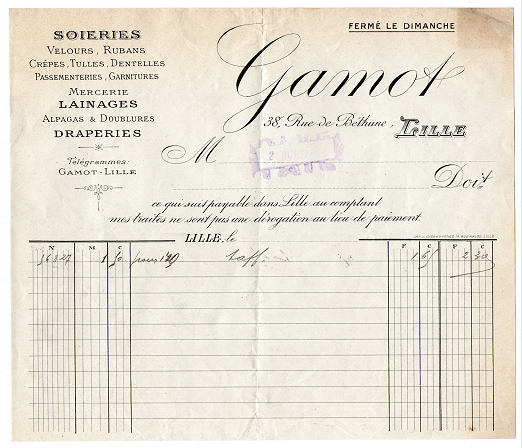 FERMÉ LE DIMANCHE
SOIERIES
VELOURS, RUBANS
CRÊPES, TULLES, DENTELLES
PASSEMENTERIES, GARNITURES
MERCERIE
LAINAGES
ALPAGAS & DOUBLURES
DRAPERIES
Télégrammes:
GAMOT-LILLE
Gamot
38, Rue de Béthune, LILLE
M
Doit
ce qui suit payable dans Lille au comptant
mes traites ne sont pas une dérogation au lieu de paiement.
LILLE, le
N M C F C F C
1 50 taff. 1 2 30